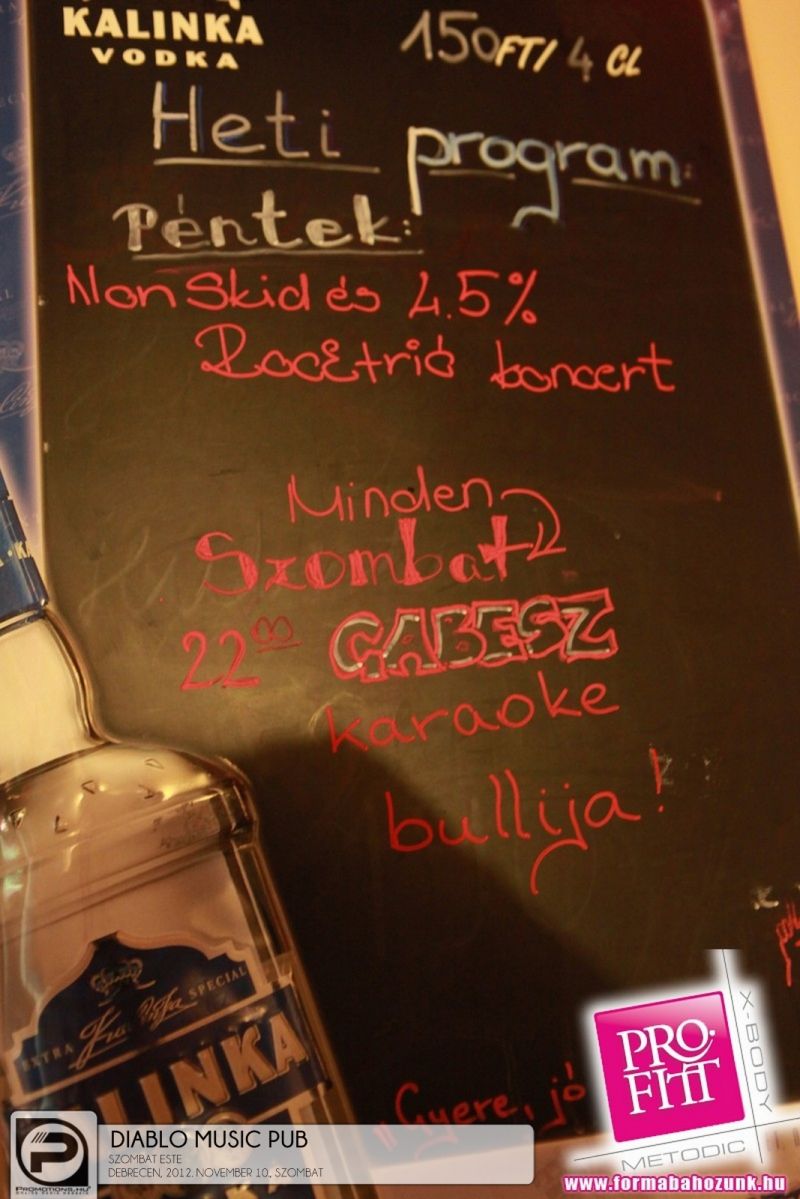 KALINKA
VODKA
150FT/4 CL
Heti program:
Péntek:
Non Skid és 4.5%
Rocktrió koncert
Minden
Szombat
22⁰⁰ GABESZ
karaoke
bullija!
EXTRA SPECIAL
KALINKA
"Gyere, jó
PRO-
FITT
X-BODY
METODIC
www.formabahozunk.hu
PROMOTIONS.HU
DIABLO MUSIC PUB
SZOMBAT ESTE
DEBRECEN, 2012. NOVEMBER 10., SZOMBAT